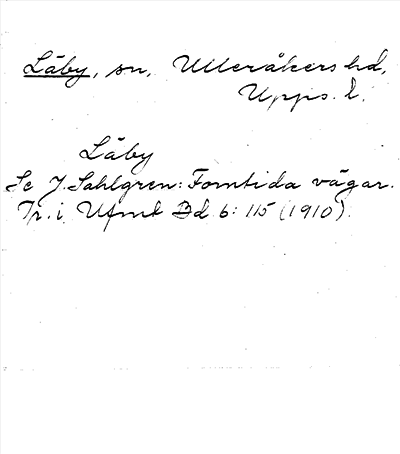 Läby, sn, Ulleråkers hd,
Upps. l.
Läby
Se J. Sahlgren: Forntida vägar.
Tr. i. Ufmt Bd 6: 115 (1910).